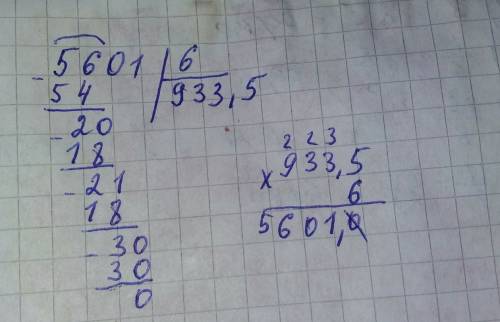 5601 | 6
- 54 | 933,5
- 20
18
- 21
18
- 30
30
0
2 2 3
933,5
x 6
5601,0